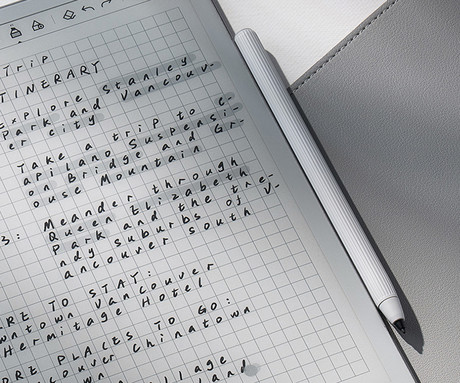 Trip
TINERARY
Explore Stanley
Park and Vancouv-
er city
Take a trip to C-
apilano Suspensi-
on Bridge and Gr-
ouse Mountain
3: Meander through
Queen Elizabeth
Park and the tre-
ndy suburbs of V-
ancouver south
ERE TO STAY:
wntown Vancouver
Hermitage Hotel
ORE PLACES TO GO:
couver Chinatown
wn
illage
land